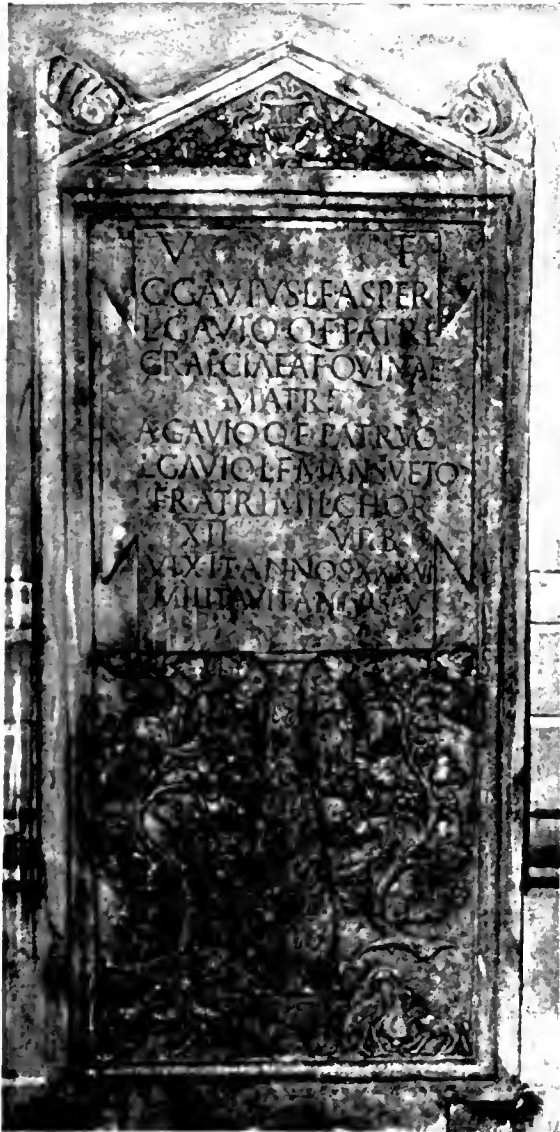 V F
C·GAVIVS·L·F·ASPER
L·GAVIO·Q·F·PATRI
GRAECIAE·AT·QVINAE
MATRI
A·GAVIO·Q·F·PATRVO
L·GAVIO·L·F·MANSVETO
FRATRI·MIL·CHOR
XII VRB
VIXIT·ANNOS
MILITAVIT